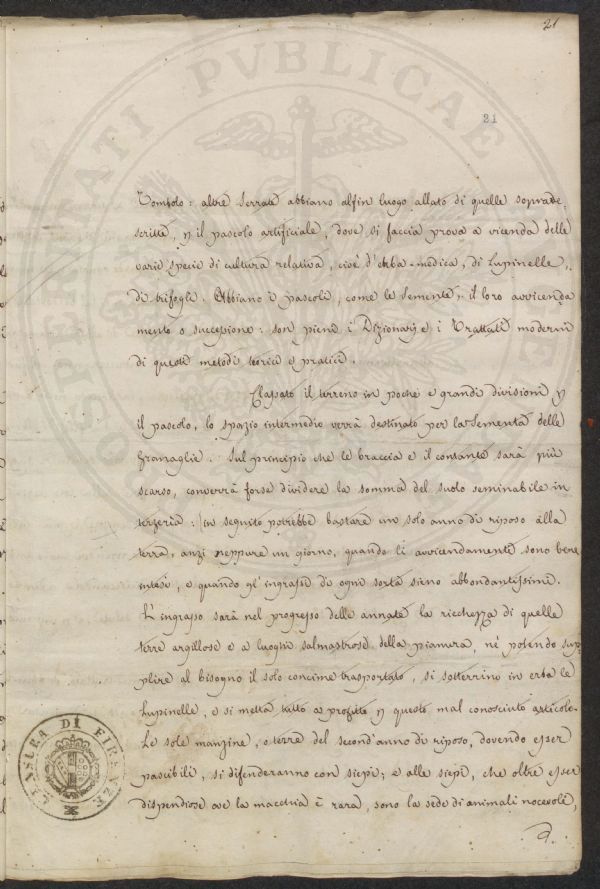 21
21
Tombolo: altre serrate abbiano alfin luogo allato di quelle soprade,
scritte, p il pascolo artificiale, dove si faccia prova a vicenda delle
varie specie di cultura relativa, cioè d'erba-medica, di Lupinelle,
di trifogli. Abbiano i pascoli, come le Semente, il loro avvicenda
mento o successione: son pieni i Dizionarj e i Trattati moderni
di questi metodi teorici e pratici.
Classato il terreno in poche e grandi divisioni p
il pascolo, lo spazio intermedio verrà destinato per la Sementa delle
Gramaglie. Sul principio che le braccia e il contante sarà più
scarso, converrà forse dividere la somma del suolo seminabile in
terzeria: in seguito potrebbe bastare un solo anno di riposo alla
terra, anzi neppure un giorno, quando li avvicendamenti sono bene
intesi, e quando gl'ingrassi di ogni sorta sieno abbondantissimi.
L'ingrasso sarà nel progresso delle annate la ricchezza di quelle
terre argillose e a luoghi salmastrose della pianura, nè potendo sup,
plire al bisogno il solo concime trasportato, si sotterrino in erba le
Lupinelle, e si metta tutto a profitto p questo mal conosciuto articolo.
Le sole manzine, o terre del second'anno di riposo, dovendo esser
pascibili, si difenderanno con siepi; e alle siepi, che oltre esser
dispendiose ove la macchia è rara, sono la sede di animali nocevoli,
PROSPERITATI PVBLICAE
CENSURA DI FIRENZE